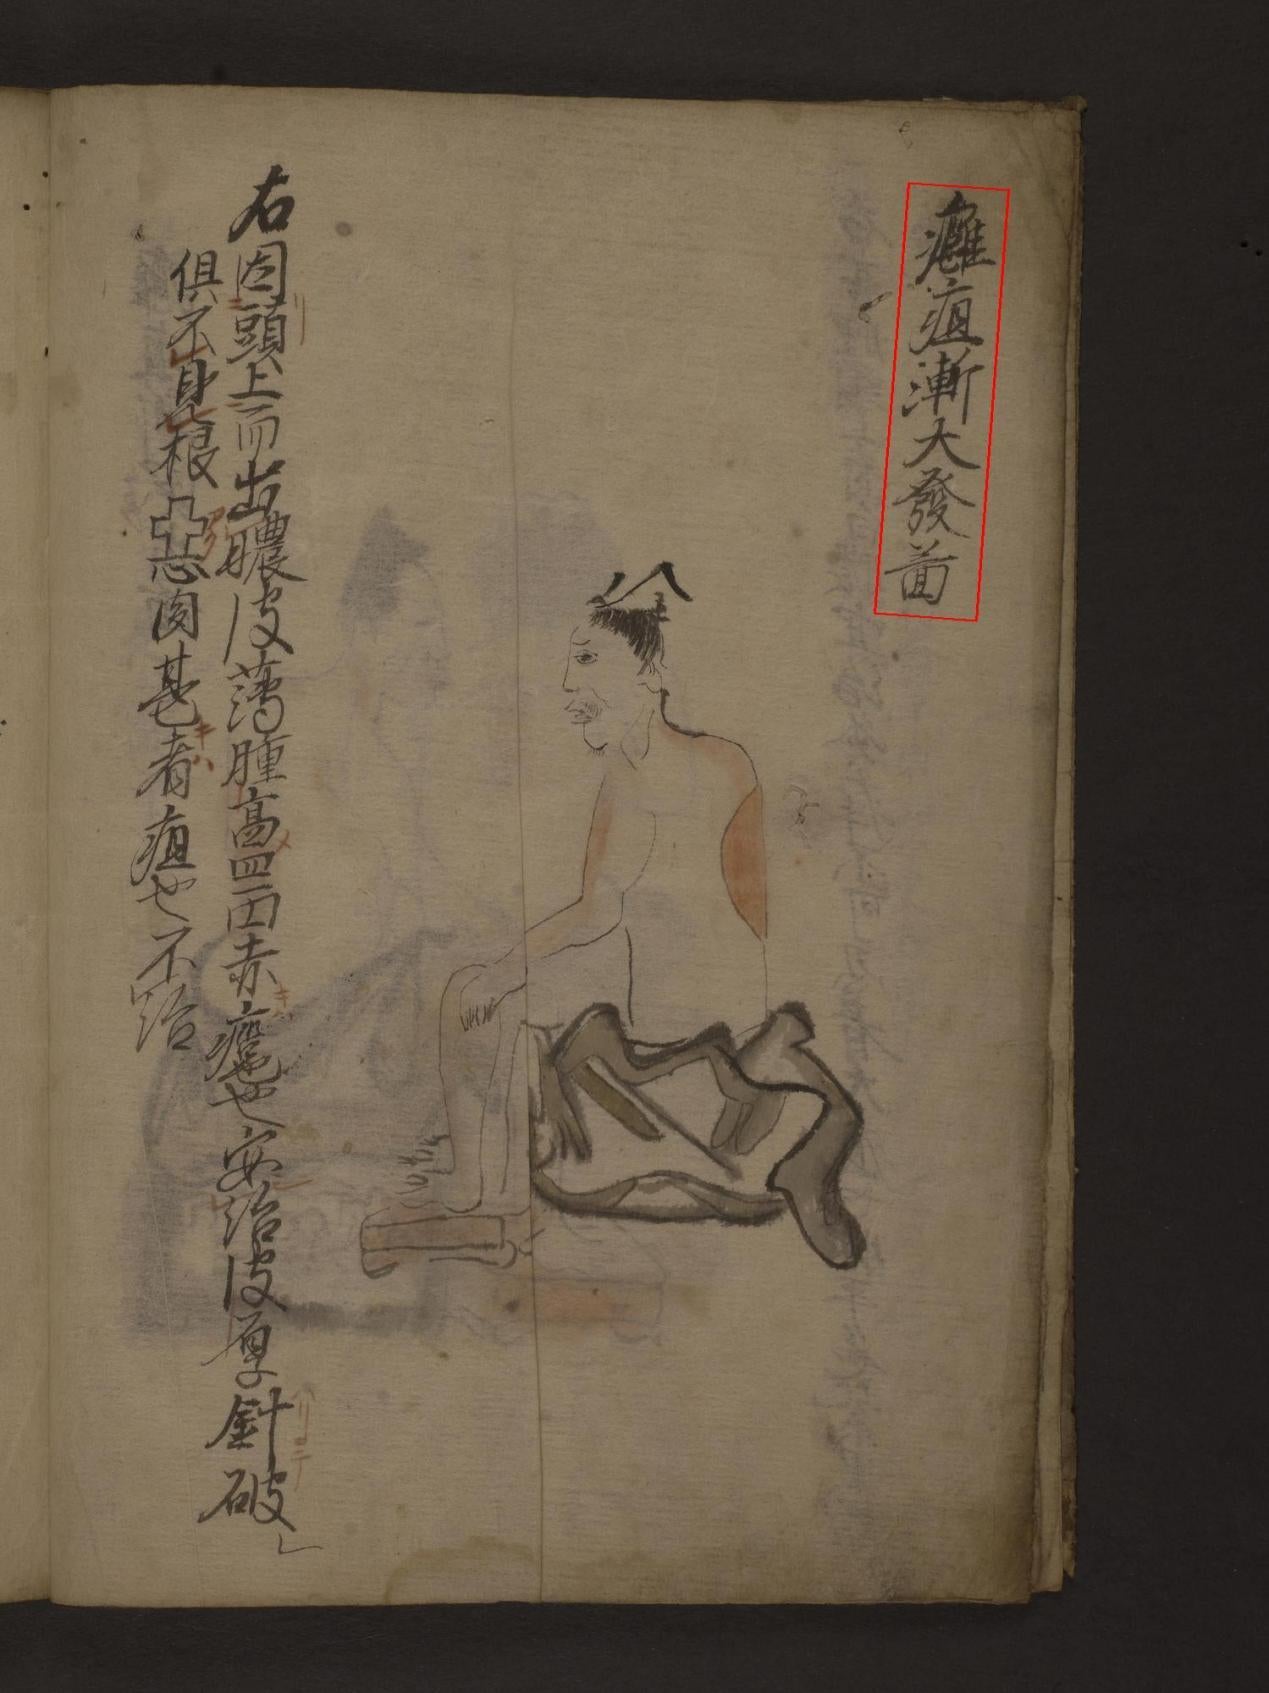 癰疽漸大發啚
右因頭上而出膿皮薄腫高四面赤癰也安治皮厚針破
俱不見根惡肉甚者疽也不治